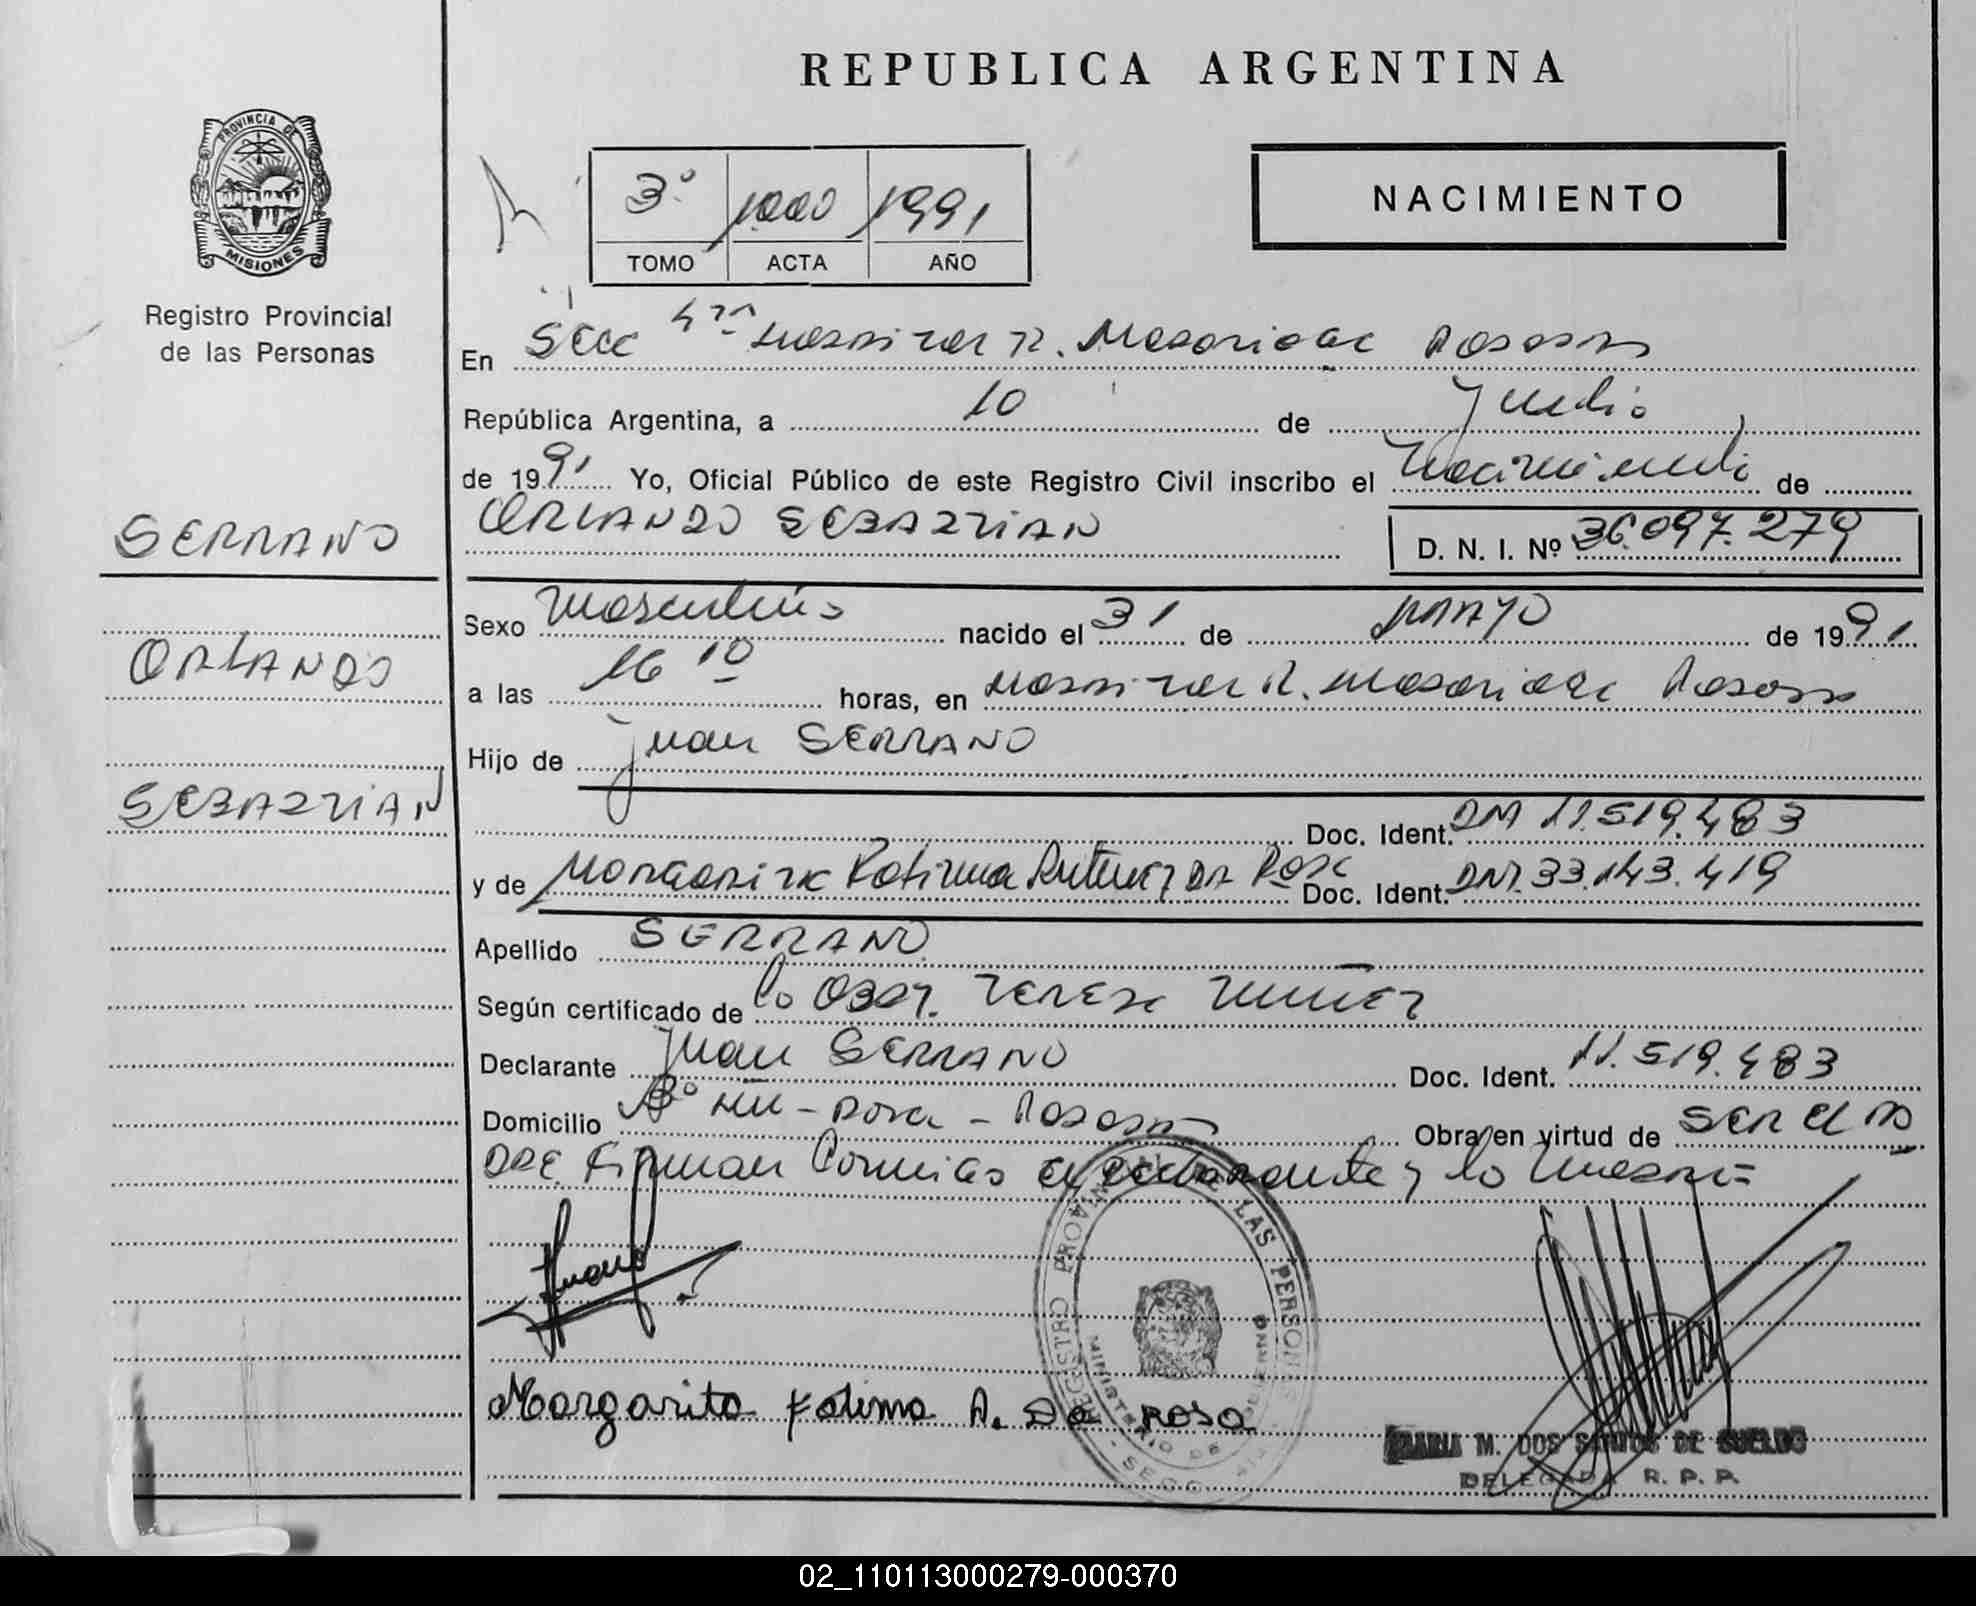 REPUBLICA ARGENTINA
PROVINCIA DE
MISIONES
Registro Provincial
de las Personas
3º 1000 1991
TOMO ACTA AÑO
NACIMIENTO
En Secc 4ta Hospital R. Madariaga Posadas
República Argentina, a 10 de Junio
de 1991 Yo, Oficial Público de este Registro Civil inscribo el Nacimiento de
ORLANDO SEBASTIAN D. N. I. Nº 36.097.279
SERRANO
ORLANDO
SEBASTIAN
Sexo Masculino nacido el 31 de MAYO de 1991
a las 16 10 horas, en Hospital R. Madariaga Posadas
Hijo de Juan SERRANO
Doc. Ident. DNI 11.519.483
y de Margarita Fatima Antunez DA Rosa Doc. Ident. DNI. 33.143.419
Apellido SERRANO
Según certificado de la Obst. Teresa Nuñez
Declarante Juan SERRANO Doc. Ident. 11.519.483
Domicilio Bº - Posadas Obra en virtud de SER EL PA
DRE Firman Conmigo el declarante y la madre
Margarita Fatima A. Da Rosa
REGISTRO PROVINCIAL DE LAS PERSONAS
MINISTERIO DE
MARIA M. DOS SANTOS DE SUELDO
DELEGADA R. P. P.
02_110113000279-000370